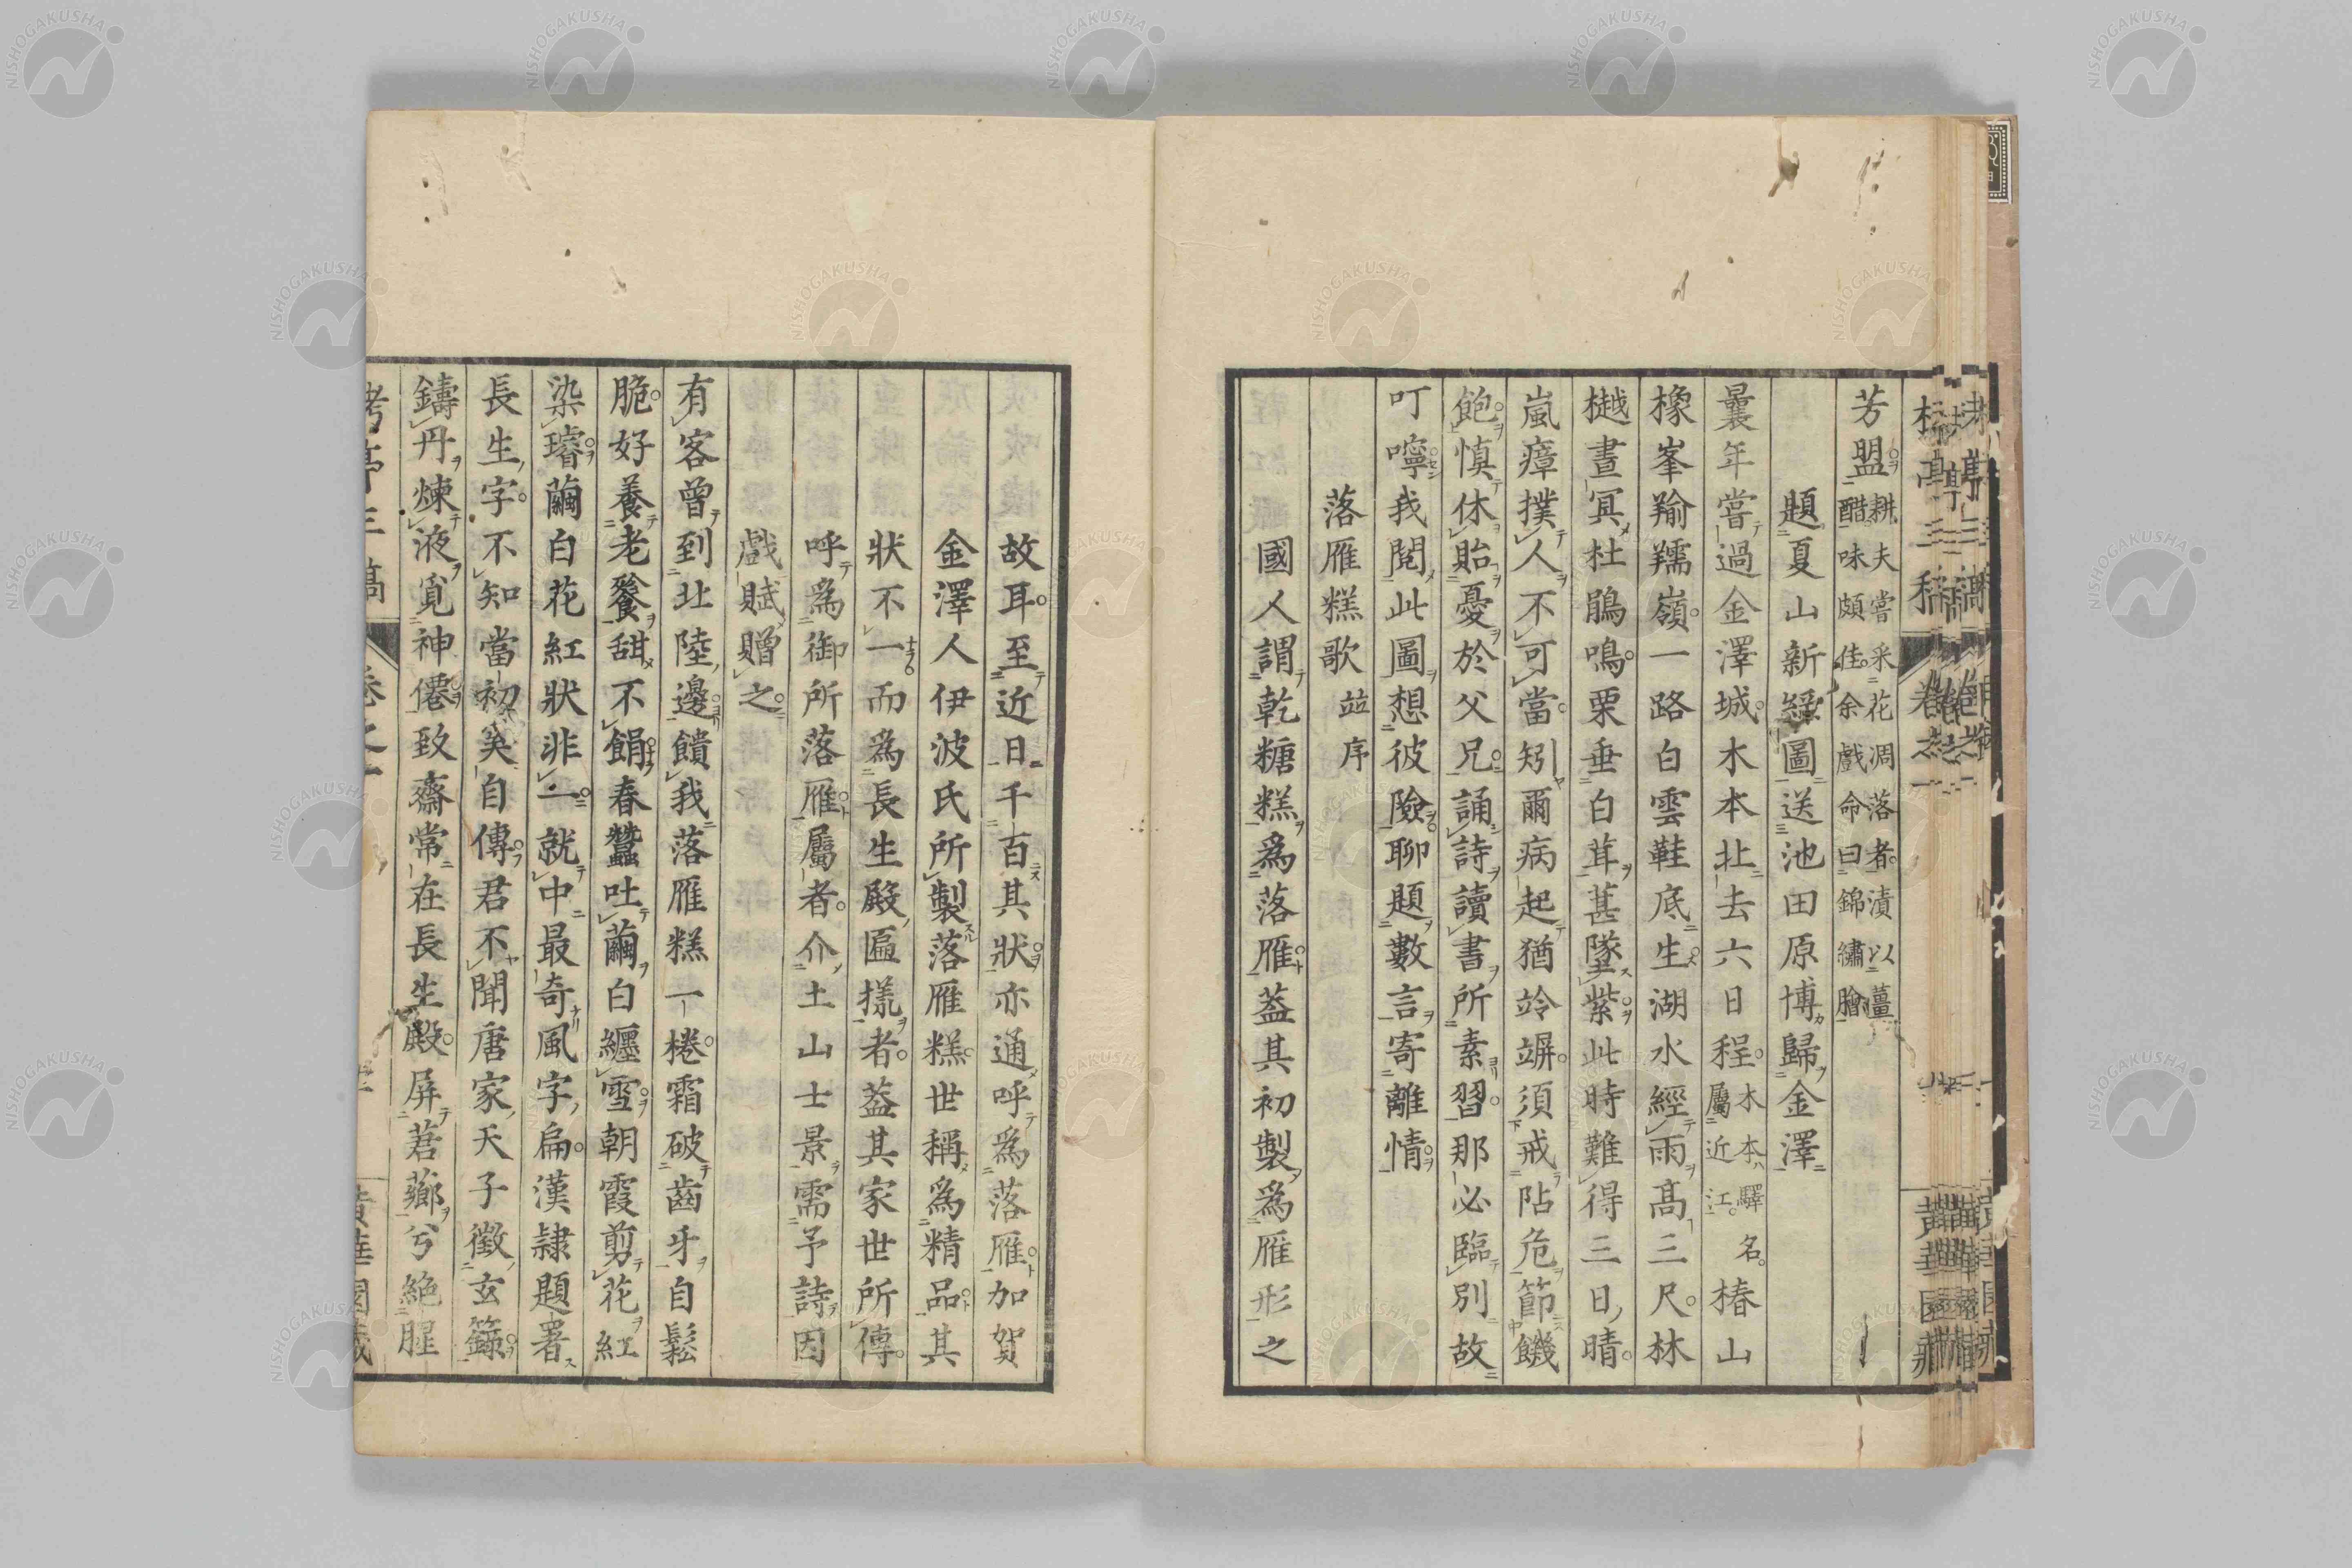 芳盟耕夫嘗采花凋落者漬以薑
醋味頗佳余戲命曰錦繡膾
題夏山新綠圖送池田原博歸金澤
曩年嘗過金澤城木本北去六日程木本驛名
屬近江椿山
橡峯羚羺嶺一路白雲鞋底生湖水經雨高三尺林
樾晝冥杜鵑鳴栗垂白茸葚墜紫此時難得三日晴
嵐瘴撲人不可當矧爾病起猶竛竮須戒阽危節饑
飽慎休貽憂於父兄誦詩讀書所素習那必臨別故
叮嚀我閱此圖想彼險聊題數言寄離情
落雁糕歌 竝序
國人謂乾糖糕為落雁葢其初製為雁形之
故耳至近日千百其狀亦通呼為落雁加賀
金澤人伊波氏所製落雁糕世稱為精品其
狀不一而為長生殿匾㨾者葢其家世所傳
呼為御所落雁屬者介土山士景需予詩因
戲賦贈之
有客曾到北陸邊饋我落雁糕一棬霜破齒牙自鬆
脆好養老饕甜不餶春蠶吐繭白纏雪朝霞剪花紅
染璿繭白花紅狀非一就中最奇風字扁漢隷題署
長生字不知當初矣自傳君不聞唐家天子徵玄籙
鑄丹煉液覓神僊致齋常在長生殿屏莙薌兮絕腥